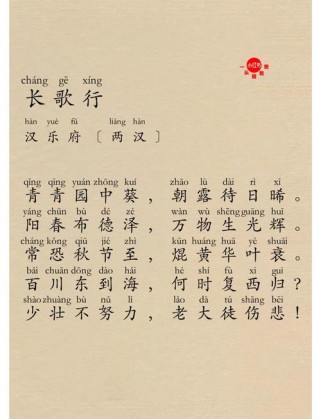 cháng gē xíng
长歌行
hàn yuè fǔ liǎng hàn
汉乐府〔两汉〕
qīng qīng yuán zhōng kuí zhāo lù dài rì xī
青青园中葵，朝露待日晞。
yáng chūn bù dé zé wàn wù shēng guāng huī
阳春布德泽，万物生光辉。
cháng kǒng qiū jié zhì kūn huáng huá yè shuāi
常恐秋节至，焜黄华叶衰。
bǎi chuān dōng dào hǎi hé shí fù xī guī
百川东到海，何时复西归？
shào zhuàng bù nǔ lì lǎo dà tú shāng bēi
少壮不努力，老大徒伤悲！